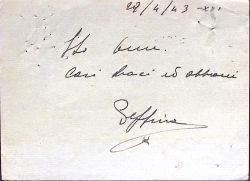 29/4/43 - XXI
Sto bene.
Cari baci ed abbracci